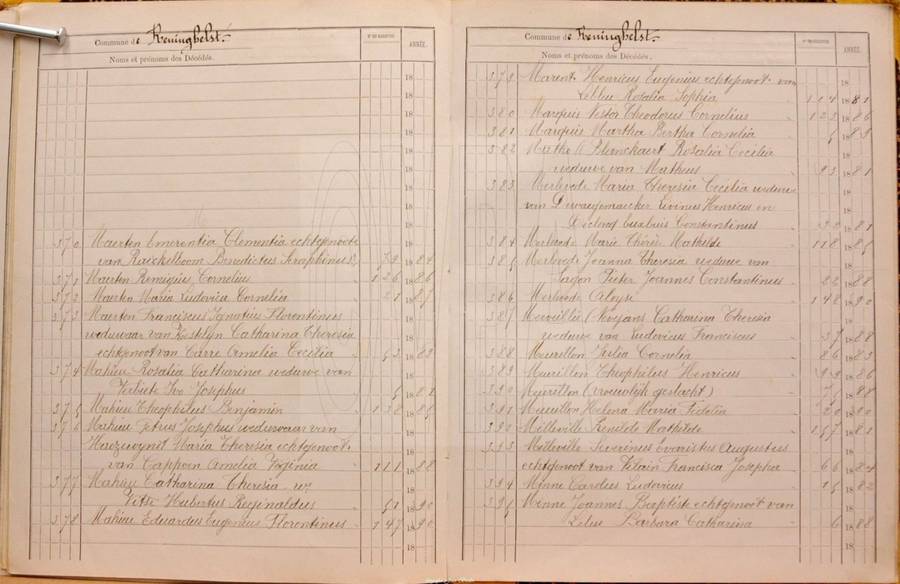 Commune de Reninghelst.
N° DU REGISTRE
ANNÉE.
Noms et prénoms des Décédés.
370 Maerten Emerentia Clementia echtgenoote
van Raeckelboom Benedictus Seraphinus 79 1884
371 Maerten Remigius Cornelius 126 1886
372 Maerten Maria Ludovica Cornelia 21 1887
373 Maerten Franciscus Ignatius Florentinus
weduwaar van Catharina Theresia
echtgenoot van Carre Amelia Cecilia 53 1883
374 Mahieu Rosalia Catharina weduwe van
Ivo Josephus 5 1888
375 Mahieu Theophilus Benjamin 138 1885
376 Mahieu Petrus Josephus weduwaar van
Maria Theresia echtgenoot
van Cappoen Amelia Virginia 111 1888
377 Mahieu Catharina Theresia we
Titse Hubertus Reginaldus 51 1890
378 Mahieu Eduardus Eugenius Florentinus 147 1890
Commune de Reninghelst.
N° DU REGISTRE
ANNÉE.
Noms et prénoms des Décédés.
379 Marent Henricus Eugenius echtgenoot van
Lebleu Rosalia Sophia 114 1881
380 Marquis Nestor Theodorus Cornelius 123 1886
381 Marquis Martha Bertha Cornelia 5 1889
382 Mathe // Planckaert Rosalia Cecilia
weduwe van Matheus 93 1881
383 Merlevede Maria Theresia Cecilia weduwe
van Dewaegemaecker Livinus Henricus en
Constantinus 30 1881
384 Merlevede Marie Thérèse Mathilde 118 1885
385 Merlevede Joanna Theresia weduwe van
Sagon Pieter Joannes Constantinus 22 1888
386 Merlevede Aloyse 148 1890
387 Catharina Theresia
weduwe van Ludovicus Franciscus 37 1888
388 Meurillon Julia Cornelia 86 1883
389 Meurillon Theophilus Henricus 99 1886
390 Meurillon (vrouwelijk geslacht) 1888
391 Meurillon Helena Maria Fidelia 1890
390 Milleville Renilde Mathilde 157 1881
393 Milleville Severinus Evaristus Augustus
echtgenoot van Vilain Francisca Josepha 66 1884
394 Minne Carolus Ludovicus 15 1882
395 Minne Joannes Baptiste echtgenoot van
Lelus Barbara Catharina 6 1888